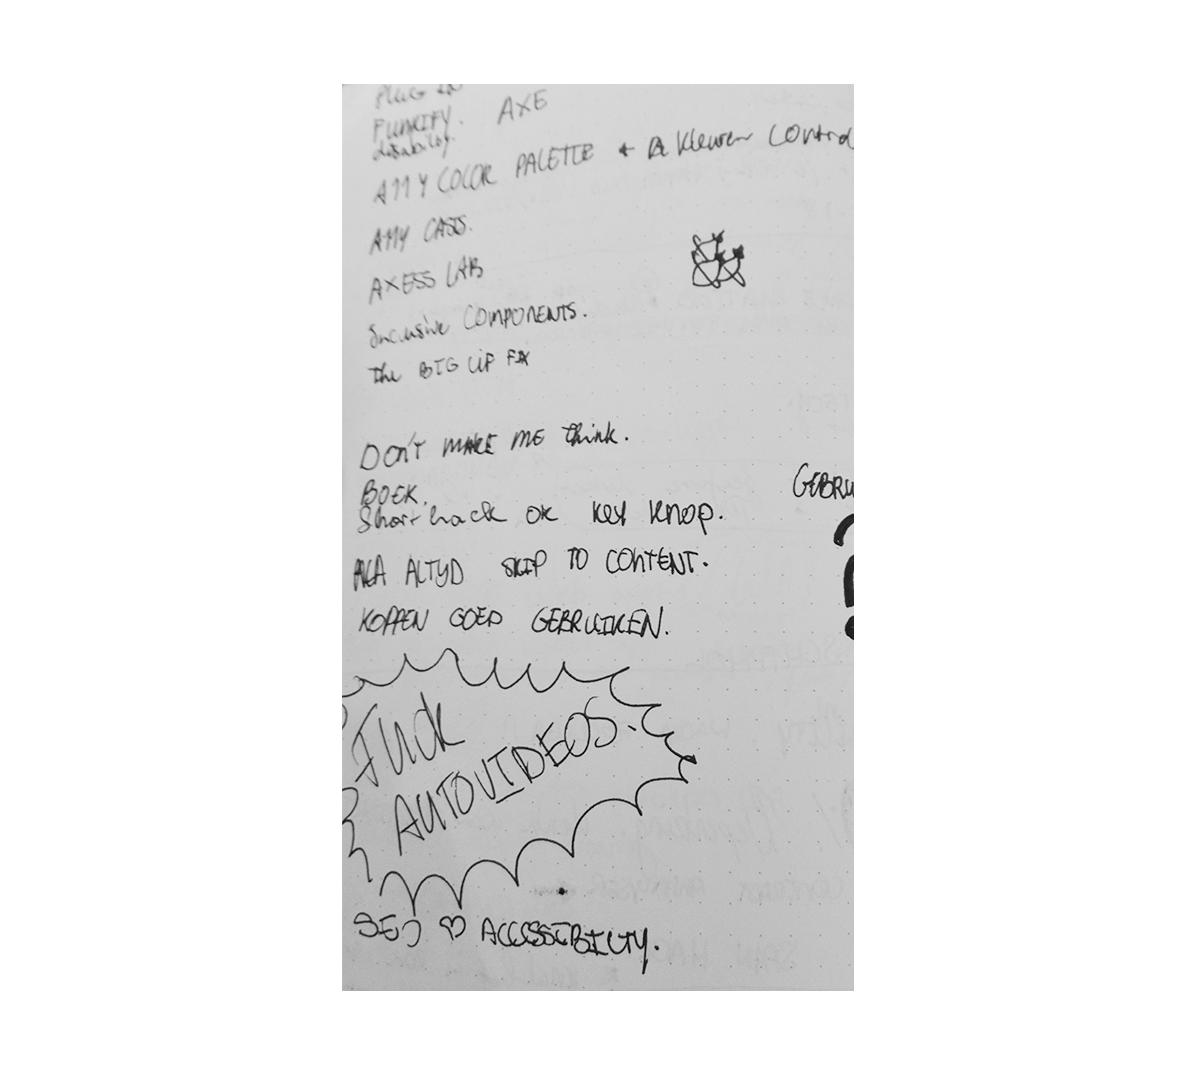 PLUG IN
FUNKIFY. AXE
disability.
A11Y COLOR PALETTE + Kleuren Contra
A11Y CASTS.
AXESS LAB
Inclusive COMPONENTS.
The BIG LIP FIX
DON'T MAKE ME think.
BOEK.
GEBRU
Short hack OK key knop.
AKA ALTYD SKIP TO CONTENT.
KOPPEN GOED GEBRUIKEN.
FUCK
AUTOVIDEOS.
SEO ♡ ACCESSIBILTY.